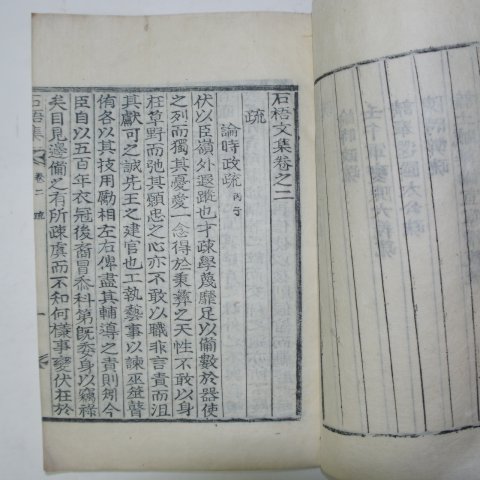 石梧文集卷之二
疏
論時政疏 丙子
伏以臣嶺外遐蹤也才疎學蔑靡足以備數於器使
之列而獨其憂愛一念得於秉彝之天性不敢以身
在草野而弛其願忠之心亦不敢以職非言責而沮
其獻可之誠先王之建官也工執藝事以諫巫筮瞽
侑各以其技用勵相左右俾盡其輔導之責則矧今
臣自以五百年衣冠後裔冒忝科第旣委身以竊祿
矣目見邊備之有所疎虞而不知何樣事變伏在於
石梧集
卷二
疏
一
論時政疏